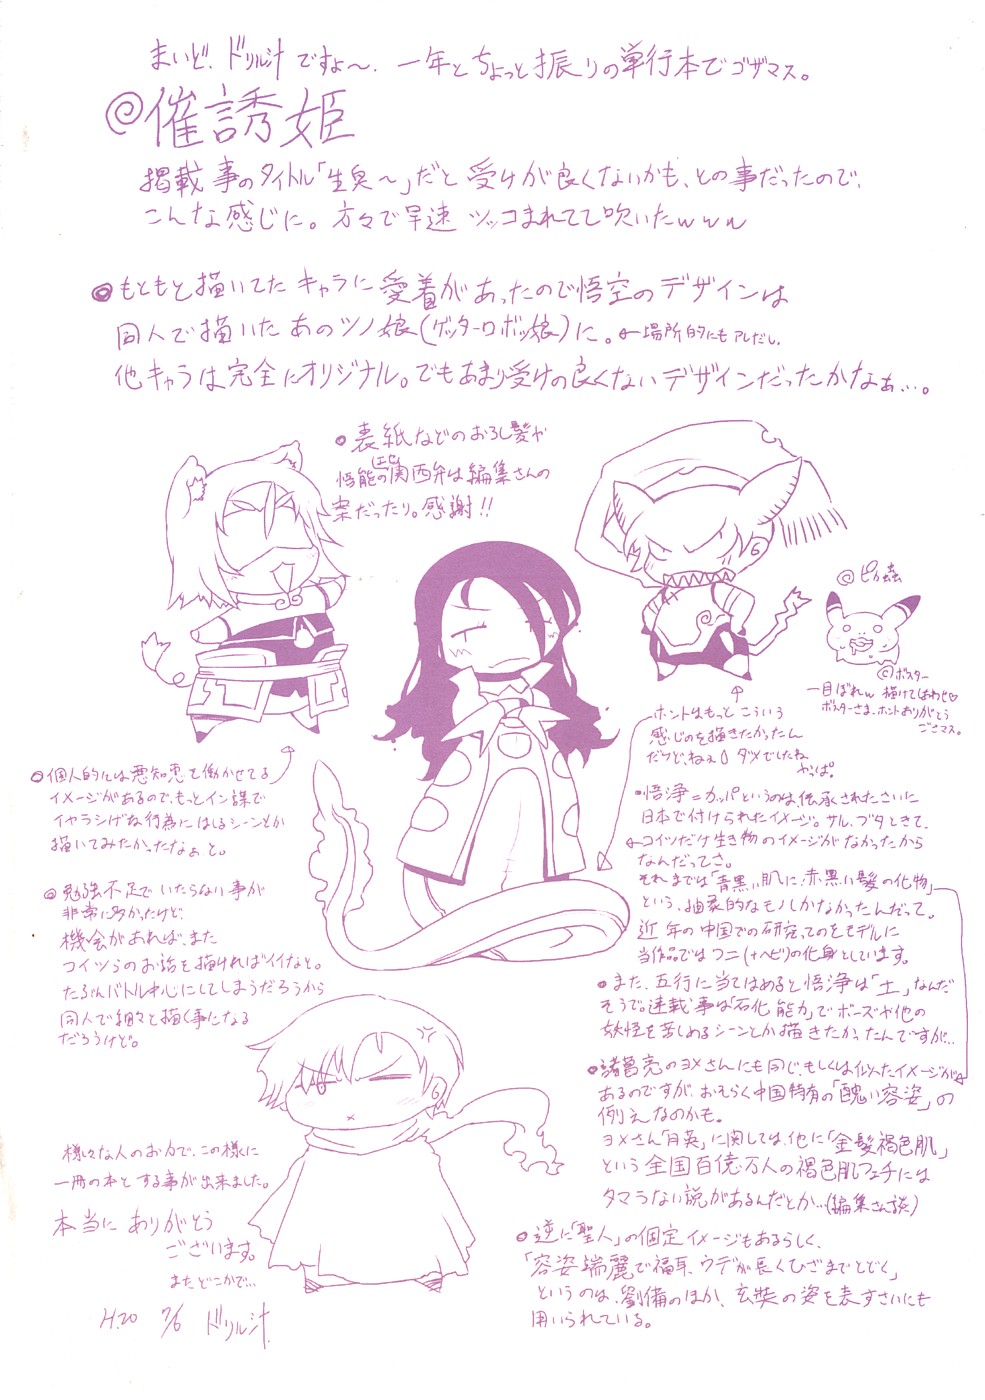 まいど、ドリル汁ですよ～、一年とちょっと振りの単行本でゴザマス。
@催誘姫
掲載事のタイトル「生臭～」だと受けが良くないかも、との事だったので、
こんな感じに。方々で早速ツッコまれてて吹いたwww
もともと描いてたキャラに愛着があったので悟空のデザインは
同人で描いたあのツノ娘(ゲッターロボッ娘)に。←場所的にもアレだし、
他キャラは完全にオリジナル。でもあまり受けの良くないデザインだったかなぁ…。
表紙などのおろし髪や
悟能の(エセ)関西弁は編集さんの
案だったり。感謝!!
@ピカ蟲
@ボスター
一目ぼれw 描けてしあわせ♡
ボスターさま、ホントありがとう
ございマス。
ホントはもっとこういう
感じのを描きたかったん
だけど、ねぇ。ダメでしたね
やっぱ。
個人的には悪知恵を働かせてる
イメージがあるので、もっとイン謀で
イヤラシげな行為にはしるシーンとか
描いてみたかったなぁと。
勉強不足でいたらない事が
非常に多かったけど、
機会があれば、また
コイツらのお話を描ければイイなと。
たぶんバトル中心にしてしまうだろうから
同人で細々と描く事になる
だろうけど。
悟浄=カッパというのは、伝承されたさいに
日本で付けられたイメージ。サル、ブタときて、
コイツだけ生き物のイメージがなかったから
なんだってさ。
それまでは「青黒い肌に、赤黒い髪の化物」
という、抽象的なモノしかなかったんだって。
近年の中国での研究、てのをモデルに
当作品ではワニ(+ヘビ)の化身としています。
また、五行に当てはめると悟浄は「土」なんだ
そうで。連載事は「石化能力」でボーズや他の
妖怪を苦しめるシーンとか描きたかったんですが…
諸葛亮のヨメさんにも同じ、もしくは似たイメージが
あるのですが、おそらく中国特有の「醜い容姿」の
例えなのかも。
ヨメさん「月英」に関しては、他に「金髪褐色肌」
という全国百億万人の褐色肌フェチには
タマラない説があるんだとか…(編集さん談)
逆に「聖人」の固定イメージもあるらしく、
「容姿端麗で福耳、ウデが長くひざまでとどく」
というのは、劉備のほか、玄奘の姿を表すさいにも
用いられている。
様々な人のお力で、この様に
一冊の本とする事が出来ました。
本当にありがとう
ございます。
またどこかで…
H.20 7/6 ドリル汁